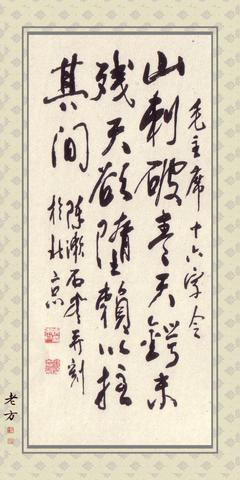 毛主席十六字令
山刺破青天鍔未
残天欲墮賴以拄
其间
陈漱石书并刻
於北京
老方